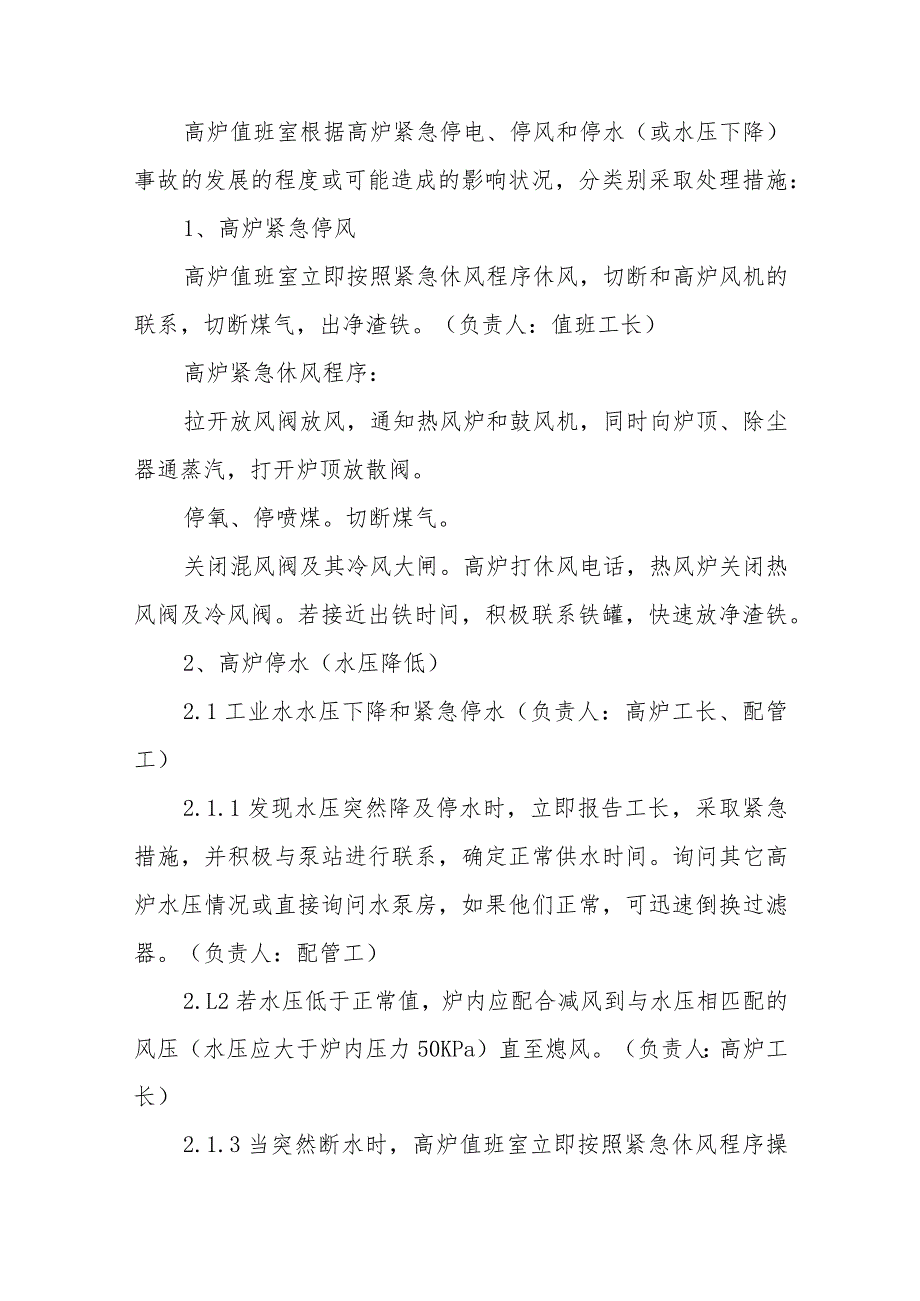 高炉值班室根据高炉紧急停电、停风和停水（或水压下降）
事故的发展的程度或可能造成的影响状况，分类别采取处理措施：
1、高炉紧急停风
高炉值班室立即按照紧急休风程序休风，切断和高炉风机的
联系，切断煤气，出净渣铁。（负责人：值班工长）
高炉紧急休风程序：
拉开放风阀放风，通知热风炉和鼓风机，同时向炉顶、除尘
器通蒸汽，打开炉顶放散阀。
停氧、停喷煤。切断煤气。
关闭混风阀及其冷风大闸。高炉打休风电话，热风炉关闭热
风阀及冷风阀。若接近出铁时间，积极联系铁罐，快速放净渣铁。
2、高炉停水（水压降低）
2.1工业水水压下降和紧急停水（负责人：高炉工长、配管
工）
2.1.1发现水压突然降及停水时，立即报告工长，采取紧急
措施，并积极与泵站进行联系，确定正常供水时间。询问其它高
炉水压情况或直接询问水泵房，如果他们正常，可迅速倒换过滤
器。（负责人：配管工）
2.L2若水压低于正常值，炉内应配合减风到与水压相匹配的
风压（水压应大于炉内压力50KPa）直至熄风。（负责人：高炉工
长）
2.1.3当突然断水时，高炉值班室立即按照紧急休风程序操